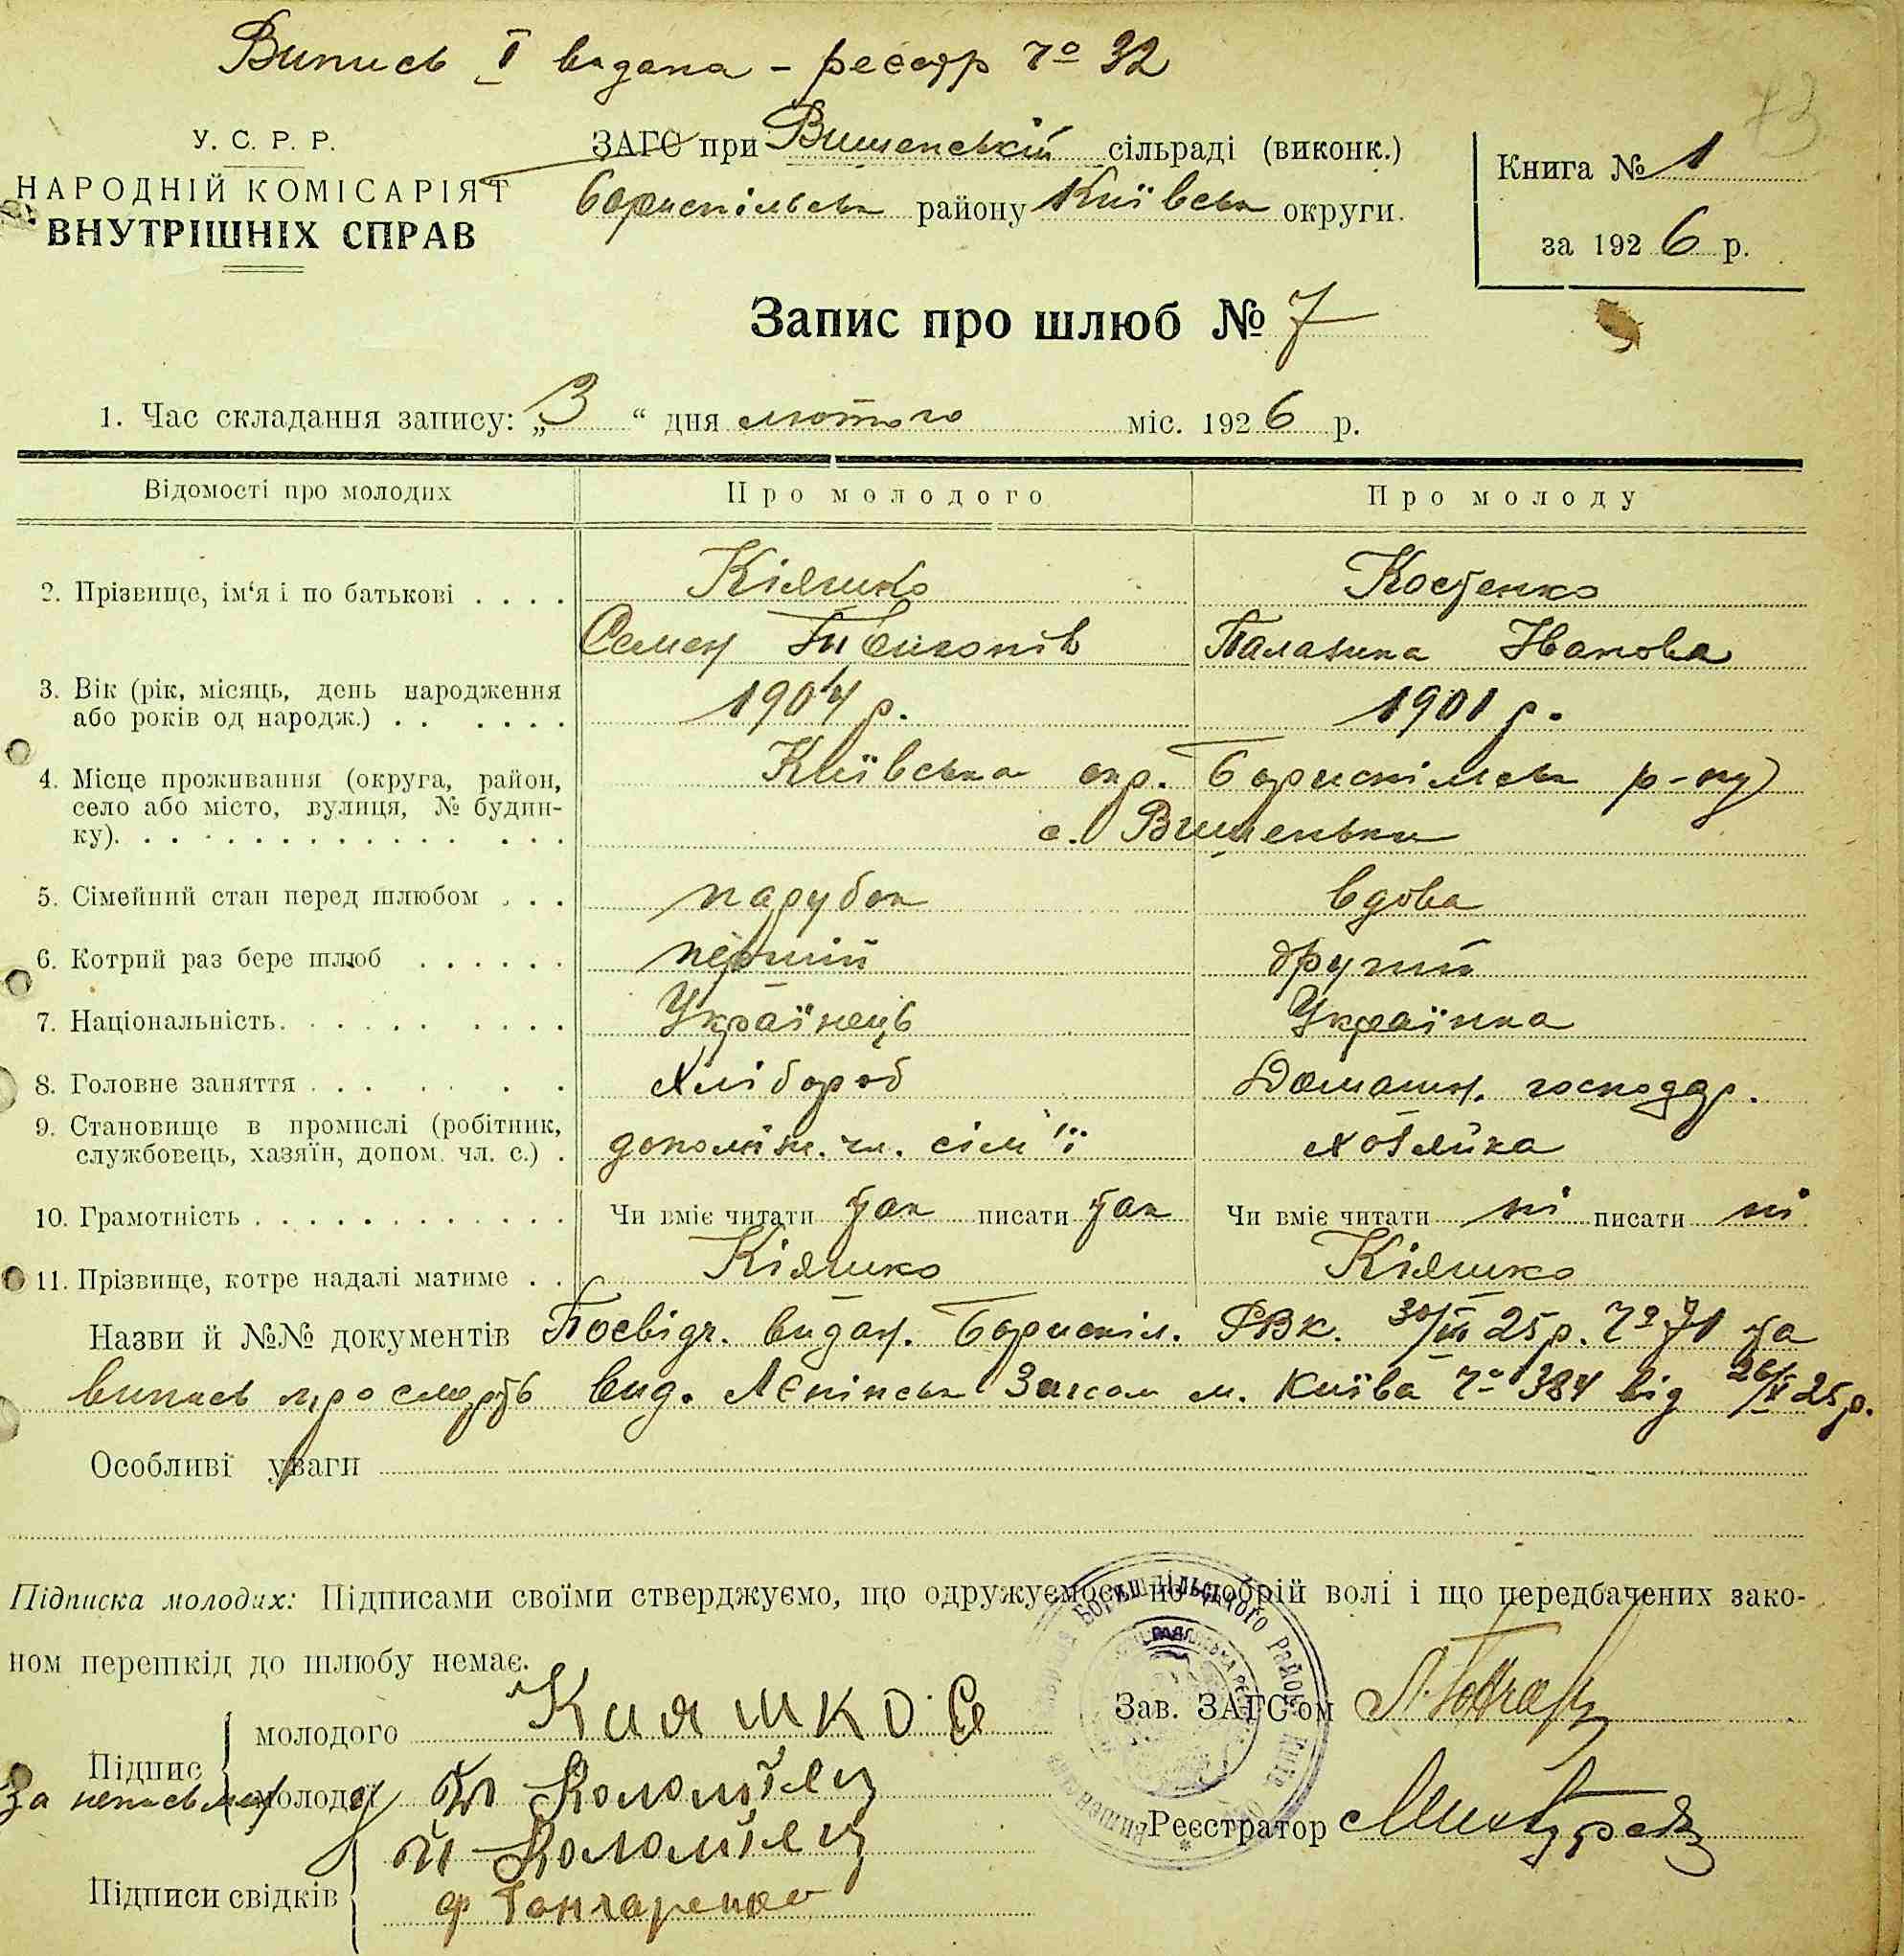 Випись I видана - реєстр № 32
У. С. Р. Р.
НАРОДНІЙ КОМІСАРІЯТ
ВНУТРІШНІХ СПРАВ
ЗАГС при Вишенській сільраді (виконк.)
Бориспільськ району Київськ округи.
Книга № 1
за 1926 р.
Запис про шлюб № 7
1. Час складання запису: „3“ дня лютого міс. 1926 р.
Відомості про молодих Про молодого Про молоду
2. Прізвище, ім‘я і по батькові . . . . Кіяшко Костенко
Семен Палажка Іванова
3. Вік (рік, місяць, день народження
або років од народж.) . . . . . . 1904 р. 1901 р.
4. Місце проживання (округа, район,
село або місто, вулиця, № будин-
ку). Київська окр. Бориспільськ р-ну
с. Вишеньки
5. Сімейний стан перед шлюбом . . . парубок вдова
6. Котрий раз бере шлюб . . . . . . перший другий
7. Національність. Українець Українка
8. Головне заняття . . . . . . Хлібороб Домашн. господар.
9. Становище в промислі (робітник,
службовець, хазяїн, допом. чл. с.) . допоміж. чл. сім'ї хазяйка
10. Грамотність Чи вміє читати так писати так Чи вміє читати ні писати ні
11. Прізвище, котре надалі матиме . . Кіяшко Кіяшко
Назви й №№ документів Посвідч. видан. Бориспіл. РВК. 30/III 25 р. № 71 та
випись про смерть вид. Ленінськ Загсом м. Київа № 384 від 26/X 25 р.
Особливі уваги
Підписка молодих: Підписами своїми стверджуємо, що одружуємось по добрій волі і що передбачених зако-
ном перешкід до шлюбу немає.
Підпис
молодого Кияшко С
За неписьменну молодої Коломієц
Підписи свідків Коломієц
Ф Гончаренко
Зав. ЗАГС'ом
Реєстратор
Бориспільського Району Київ